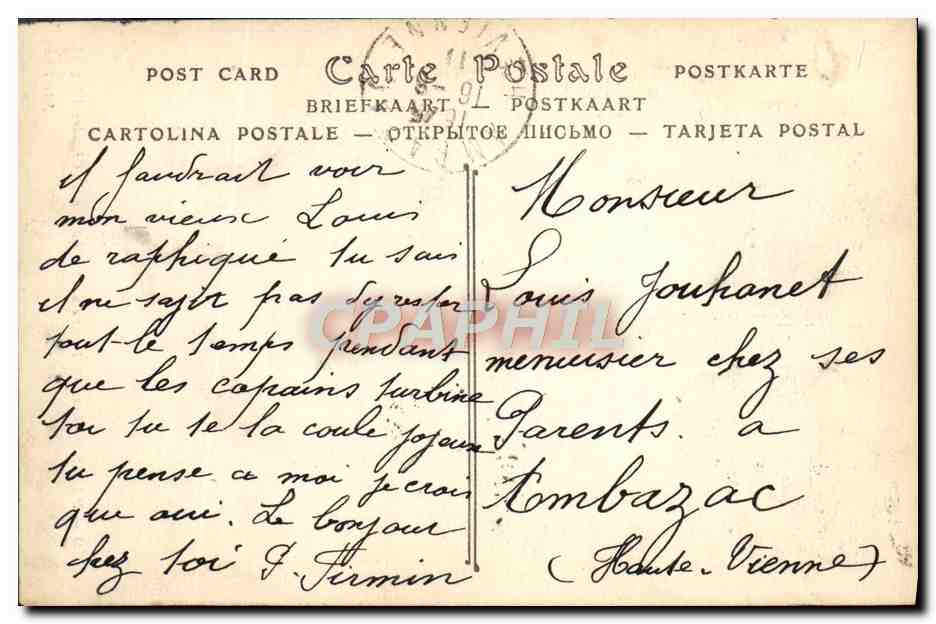 POST CARD Carte Postale POSTKARTE
BRIEFKAART — POSTKAART
CARTOLINA POSTALE — ОТКРЫТОЕ ПИСЬМО — TARJETA POSTAL
il faudrait voir
mon vieux Louis
de raphiqué tu sais
il ne sajit pas dy rester
tout-le temps pendant
que les copains turbine
toi tu te la coule joyeuse
tu pense a moi je crois
que oui. Le bonjour
chez toi P. Firmin
Monsieur
Louis Jouhanet
menuisier chez ses
Parents. a
Ambazac
(Haute-Vienne)
CPAPHIL